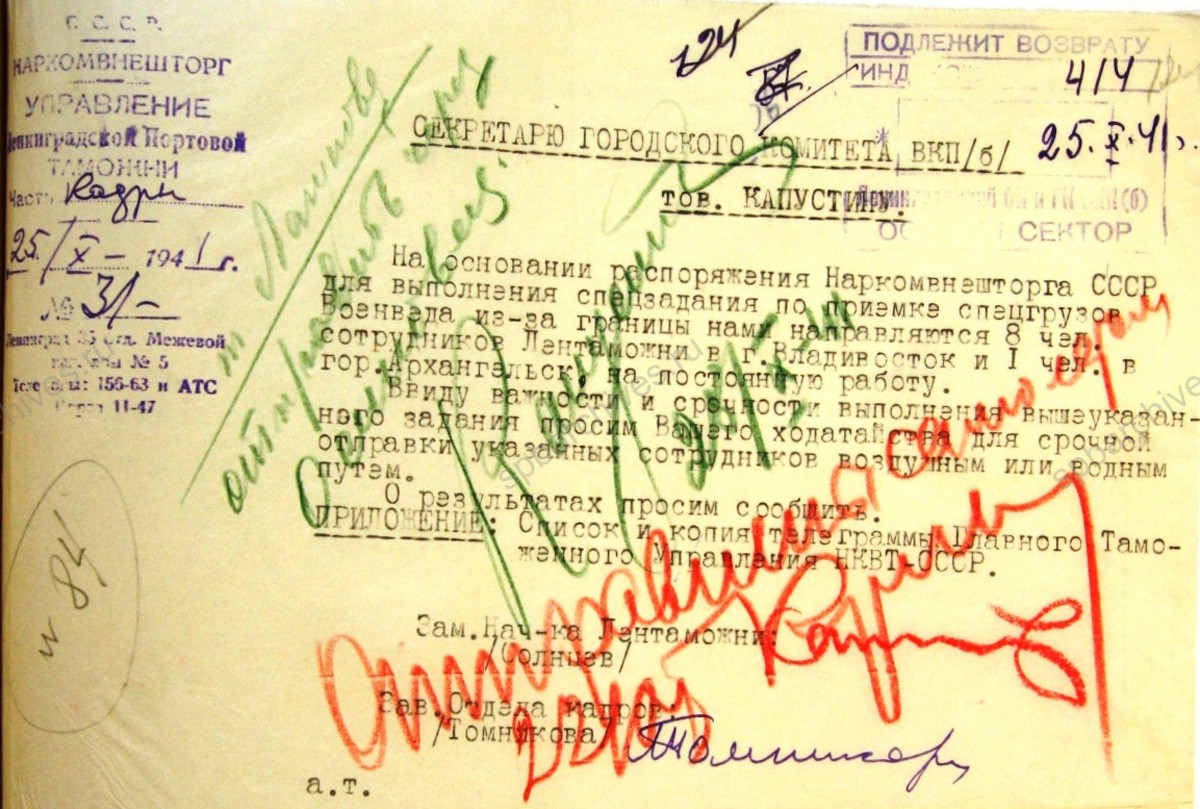 С. С. С. Р.
НАРКОМВНЕШТОРГ
УПРАВЛЕНИЕ
Ленинградской Портовой
ТАМОЖНИ
Часть Кадры
25/X – 1941 г.
№ 31–
Ленинград 35 Отд. Межевой
№ 5
156-63 и АТС
11-47
124
84.
ПОДЛЕЖИТ ВОЗВРАТУ
ИНД
414
25.X.41г.
СЕКТОР
СЕКРЕТАРЮ ГОРОДСКОГО КОМИТЕТА ВКП/б/
тов. КАПУСТИНУ.
На основании распоряжения Наркомвнешторга СССР
для выполнения спецзадания по приемке спецгрузов
Военведа из-за границы нами направляются 8 чел.
сотрудников Лентаможни в г.Владивосток и I чел. в
гор.Архангельск, на постоянную работу.
Ввиду важности и срочности выполнения вышеуказан-
ного задания просим Вашего ходатайства для срочной
отправки указанных сотрудников воздушным или водным
путем.
О результатах просим сообщить.
ПРИЛОЖЕНИЕ: Список и копия телеграммы Главного Тамо-
женного Управления НКВТ-СССР.
Зам.Нач-ка Лентаможни:
/Солнцев/
Зав.Отдела кадров
/Томникова/
а.т.
отправлены самолетом
84
spbarchives.ru